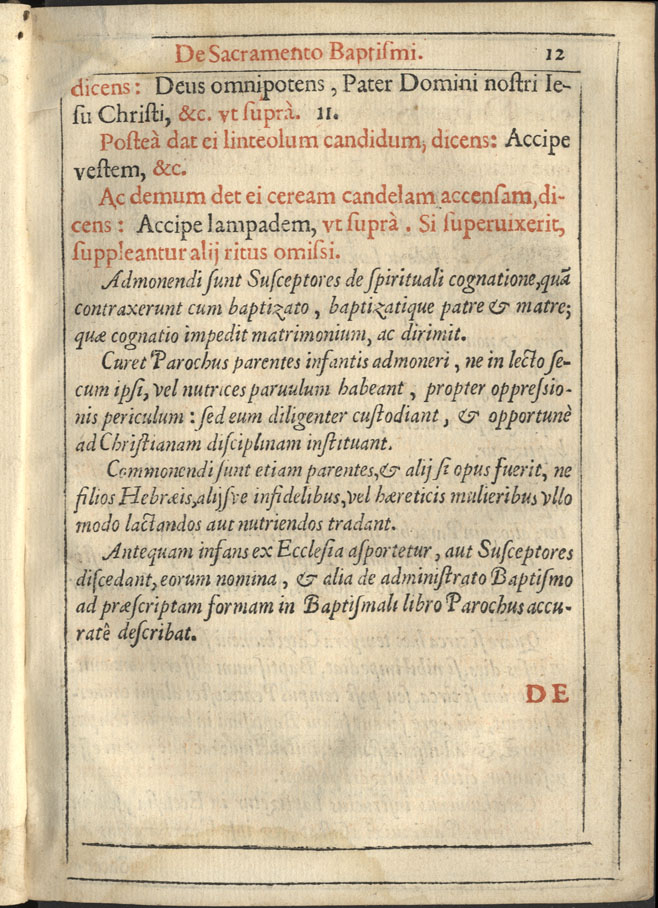 De Sacramento Baptiſmi. 12
dicens: Deus omnipotens, Pater Domini noſtri Ie-
ſu Chriſti, &c. vt ſuprà. 11.
Poſteà dat ei linteolum candidum, dicens: Accipe
veſtem, &c.
Ac demum det ei ceream candelam accenſam, di-
cens: Accipe lampadem, vt ſuprà. Si ſuperuixerit,
ſuppleantur alij ritus omiſsi.
Admonendi ſunt Suſceptores de ſpirituali cognatione, quā
contraxerunt cum baptizato, baptizatique patre & matre;
quæ cognatio impedit matrimonium, ac dirimit.
Curet Parochus parentes infantis admoneri, ne in lecto ſe-
cum ipſi, vel nutrices paruulum habeant, propter oppreſsio-
nis periculum: ſed eum diligenter cuſtodiant, & opportunè
ad Chriſtianam diſciplinam inſtituant.
Commonendi ſunt etiam parentes, & alij ſi opus fuerit, ne
filios Hebræis, alijſve infidelibus, vel hæreticis mulieribus vllo
modo lactandos aut nutriendos tradant.
Antequam infans ex Eccleſia aſportetur, aut Suſceptores
diſcedant, eorum nomina, & alia de adminiſtrato Baptiſmo
ad præſcriptam formam in Baptiſmali libro Parochus accu-
ratê deſcribat.
DE